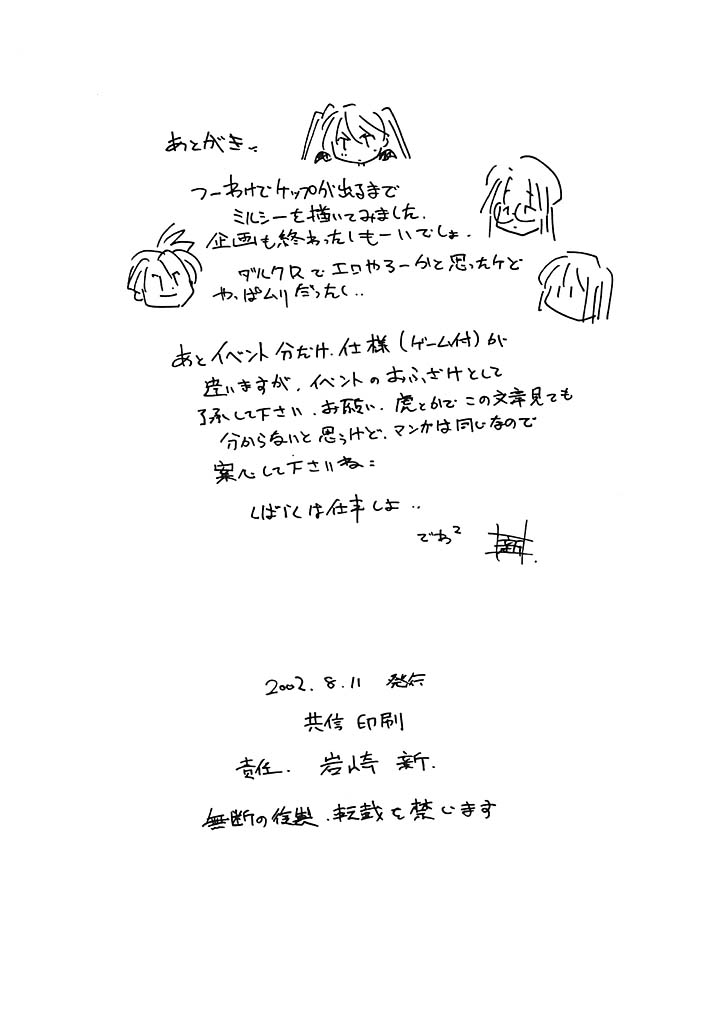 あとがき〜
つーわけでケップが出るまで
ミルシーを描いてみました.
企画も終わったしもーいでしょ.
ダルクロでエロやろーかと思ったケど
やっぱムリだったし..
あとイベント分だけ.仕様(ゲーム付)が
違いますが.イベントのおふざけとして
了承して下さい.お願い.虎とかでこの文章見ても
分からないと思うけど.マンガは同じなので
安心して下さいね
しばらくは仕事しよ..
でわ2
新
2002.8.11 発行
共信印刷
責任. 岩崎 新.
無断の複製.転載を禁じます